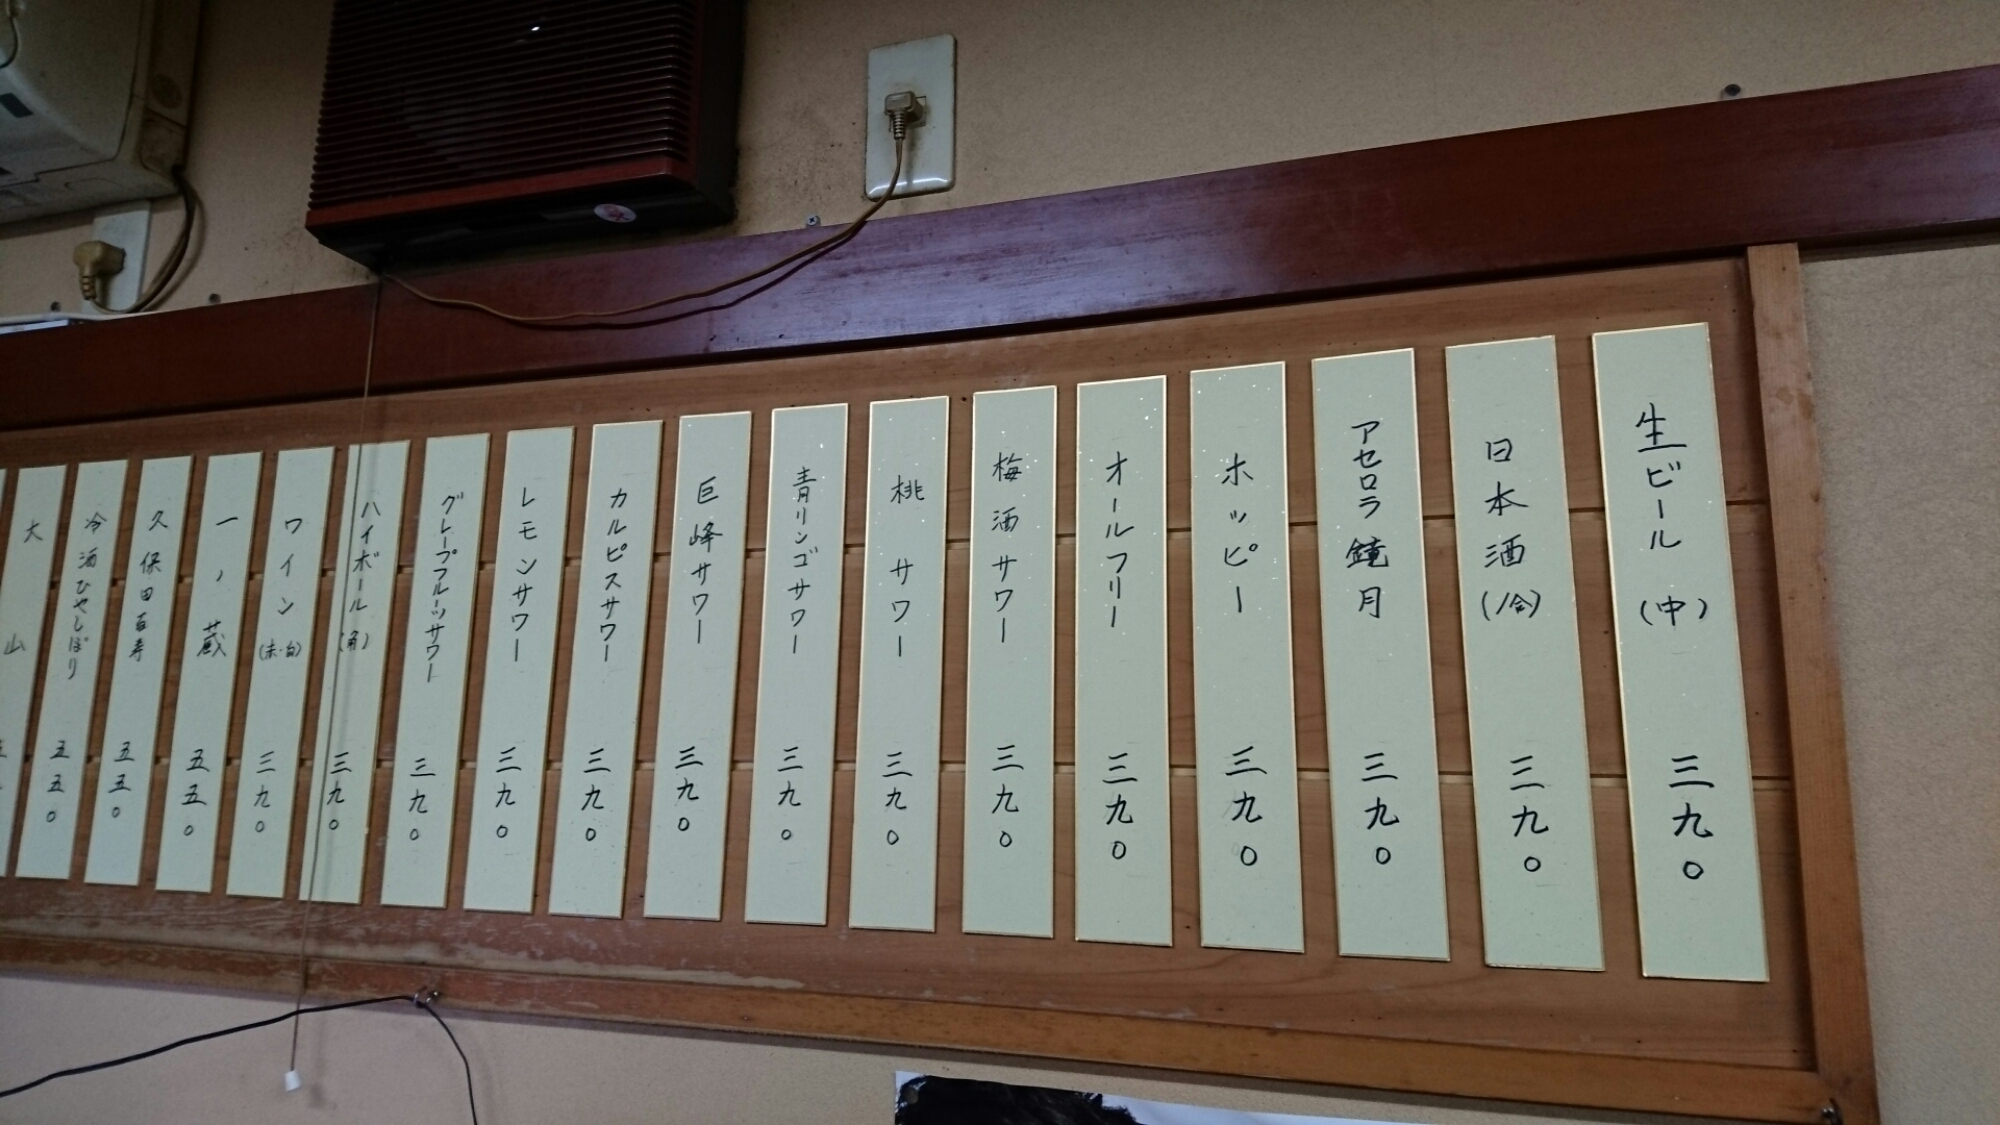 生ビール(中) 三九〇
日本酒(冷) 三九〇
アセロラ鏡月 三九〇
ホッピー 三九〇
オールフリー 三九〇
梅酒サワー 三九〇
桃サワー 三九〇
青リンゴサワー 三九〇
巨峰サワー 三九〇
カルピスサワー 三九〇
レモンサワー 三九〇
グレープフルーツサワー 三九〇
ハイボール(角) 三九〇
ワイン(赤・白) 三九〇
一ノ蔵 五五〇
久保田百寿 五五〇
冷酒ひやしぼり 五五〇
大山